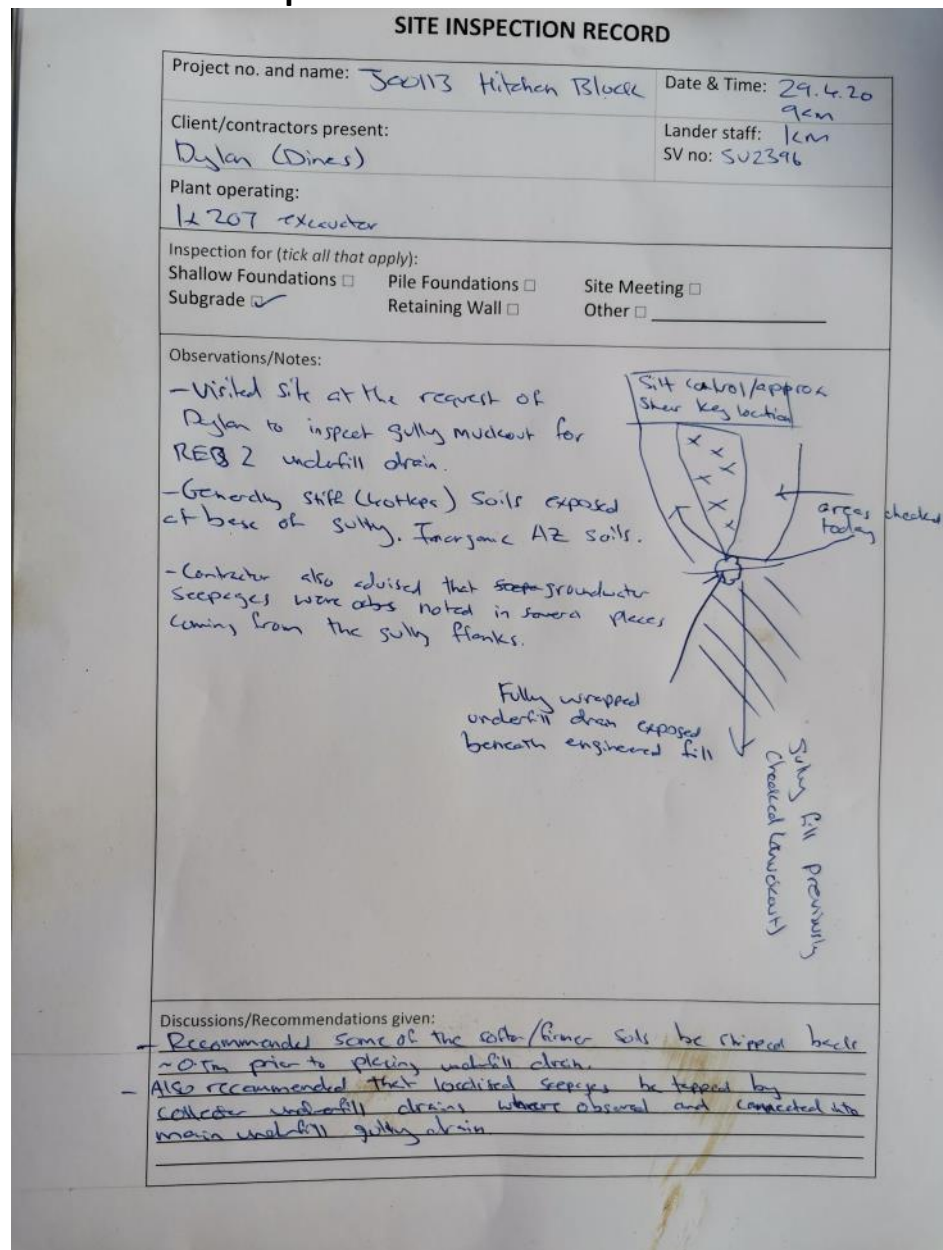 SITE INSPECTION RECORD
Project no. and name: J00113 Hitchen Block
Date & Time: 29.4.20
9am
Client/contractors present:
Dylan (Dines)
Lander staff: KM
SV no: SV2396
Plant operating:
1x 20T excavator
Inspection for (tick all that apply):
Shallow Foundations □ Pile Foundations □ Site Meeting □
Subgrade ☑ Retaining Wall □ Other □
Observations/Notes:
- Visited site at the request of
Dylan to inspect gully muckout for
RE 2 underfill drain.
- Generally stiff soils exposed
at base of gully. Inorganic AZ soils.
- Contractor also advised that groundwater
seepages were noted in several places
coming from the gully flanks.
Silt control/approx
Shear key location
areas checked
today
Fully wrapped
underfill drain exposed
beneath engineered fill
Gully fill previously
checked (muckout)
Discussions/Recommendations given:
- Recommended some of the softer/firmer soils be chipped back
~0.5m prior to placing underfill drain.
- Also recommended that localised seepages be tapped by
collector underfill drains where observed and connected into
main underfill gully drain